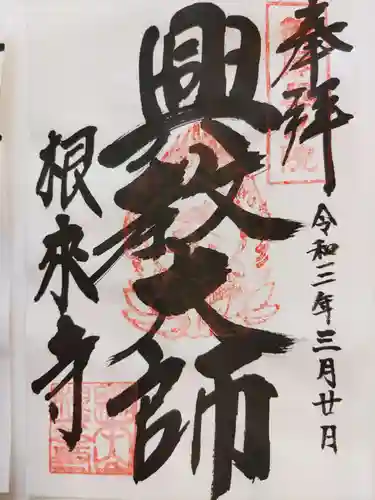 奉拝
令和三年三月廿日
興教大師
根来寺